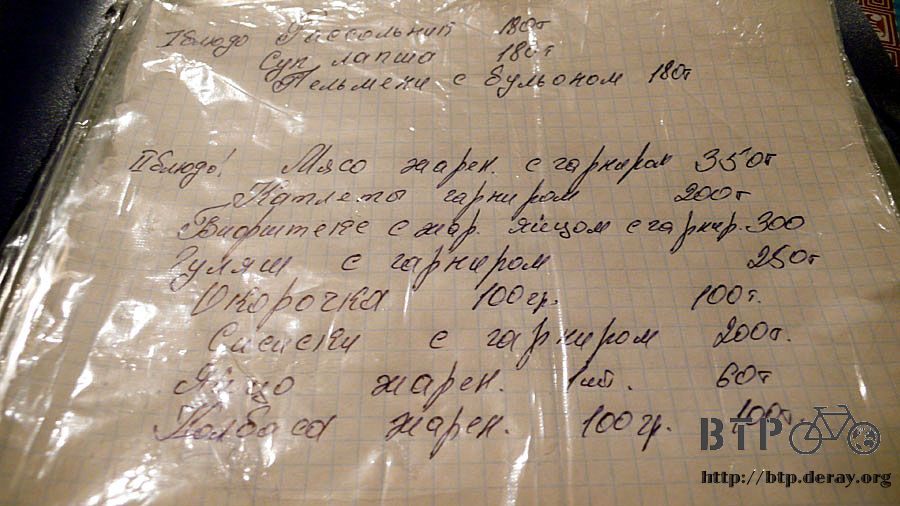 I блюдо Рассольник 180т
Суп лапша 180т
Пельмени с бульоном 180т
II блюдо! Мясо жарен. с гарниром 350т
Катлеты гарниром 200т
Бифштекс с жар. яйцом с гарнир. 300
Гуляш с гарниром 250т
Окорочка 100гр. 100т.
Сисиски с гарниром 200т.
Яйцо жарен. 1шт. 60т
Колбаса жарен. 100гр. 100т.
BTP
http://btp.deray.org